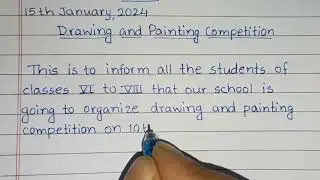 15th January, 2024
Drawing and Painting Competition
This is to inform all the students of
classes VI to VIII that our school is
going to organize drawing and painting
competition on 10